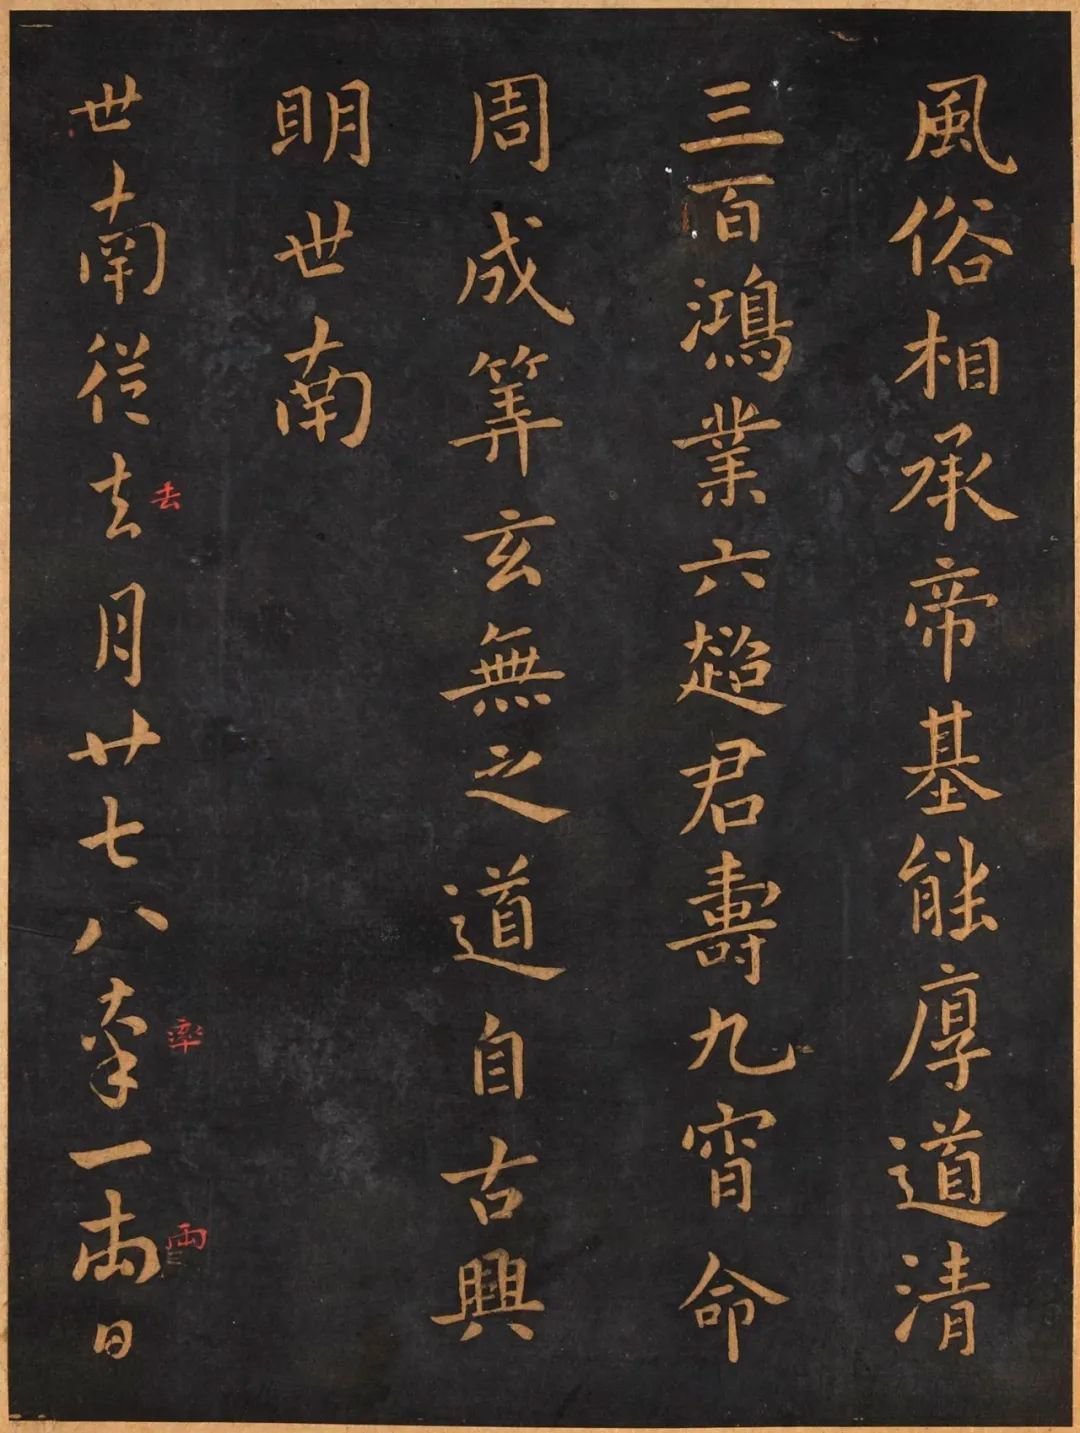 風俗相承帝基能厚道清
三百鴻業六超君壽九霄命
周成筭玄無之道自古興
明世南
世南從去月廿七八率一兩日
去
率
兩